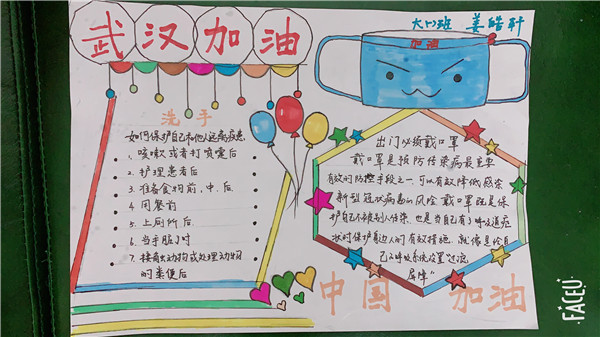 武汉加油
洗手
如何保护自己和他人远离疾患
1、咳嗽或者打喷嚏后
2、护理患者后
3、准备食物前、中、后
4、用餐前
5、上厕所后
6、当手脏了时
7、接触动物或处理动物
的粪便后
大(1)班 姜皓轩
加油
出门必须戴口罩
戴口罩是预防传染病最重要
有效的防控手段之一，可以有效降低感染
新型冠状病毒的风险 戴口罩既是保
护自己不被别人传染，也是当自己有了呼吸道症
状时保护身边人的有效措施，就像是给自
己的呼吸系统设置"过滤
屏障"
中国 加油
FACEU